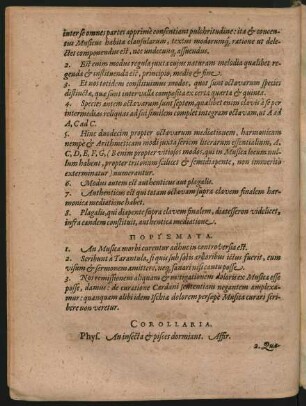 inter se omnes partes apprimè consentiant pulchritudine: ita & concentus Musicus habita clausularum, textus modorumq́, ratione ut delectet componendus est, nec unde cunq́, assuendus.
2. Est enim modus regula juxta cujus naturam melodia qualibet regenda & constituenda est, principio, medio & fine.
3. Et tot totidem constituimus modos, quot sunt octavarum species distinctæ, quæ sunt intervalla composita ex certa quarta & quinta.
4. Species autem octavarum sunt septem, quælibet enim clavis à se per intermedias reliquas ad sui similem complet integram octavam, ut A ad A, C ad C.
5. Hinc duodecim propter octavarum mediationem, harmonicam nempe & Arithmeticam modi juxta seriem literarum essentialium, A, C, D, E, F, G, (B enim propter vitiosos modos, qui in Musica locum nullum habent, propter tritonum scilicet & semidiapente, non immeritò exterminatur) numerantur.
6. Modus autem est authenticus aut plagalis.
7. Authenticus est qui totam octavam supra clavem finalem harmonicè mediatione habet.
8. Plagalis, qui diapente supra clavem finalem, diatesseron videlicet, infra eandem constituit, authentica mediatione.
ΠΟΡΙΣΜΑΤΑ.
1. An Musica morbi curentur adhuc in controversia est.
2. Scribunt à Tarantula, si quis sub solis ardoribus ictus fuerit, eum visum & sermonem amittere, neq́, sanari nisi cantu posse.
3. Nos remissionem aliquam & mitigationem doloris ex Musica esse posse, damus: de curatione Cardani sententiam negantem amplexamur: quanquam alibi idem Ischia dolorem persæpè Musica curari scribere non veretur.
COROLLARIA.
Phys. An insecta & pisces dormiant. Affir.
2. Quæ-